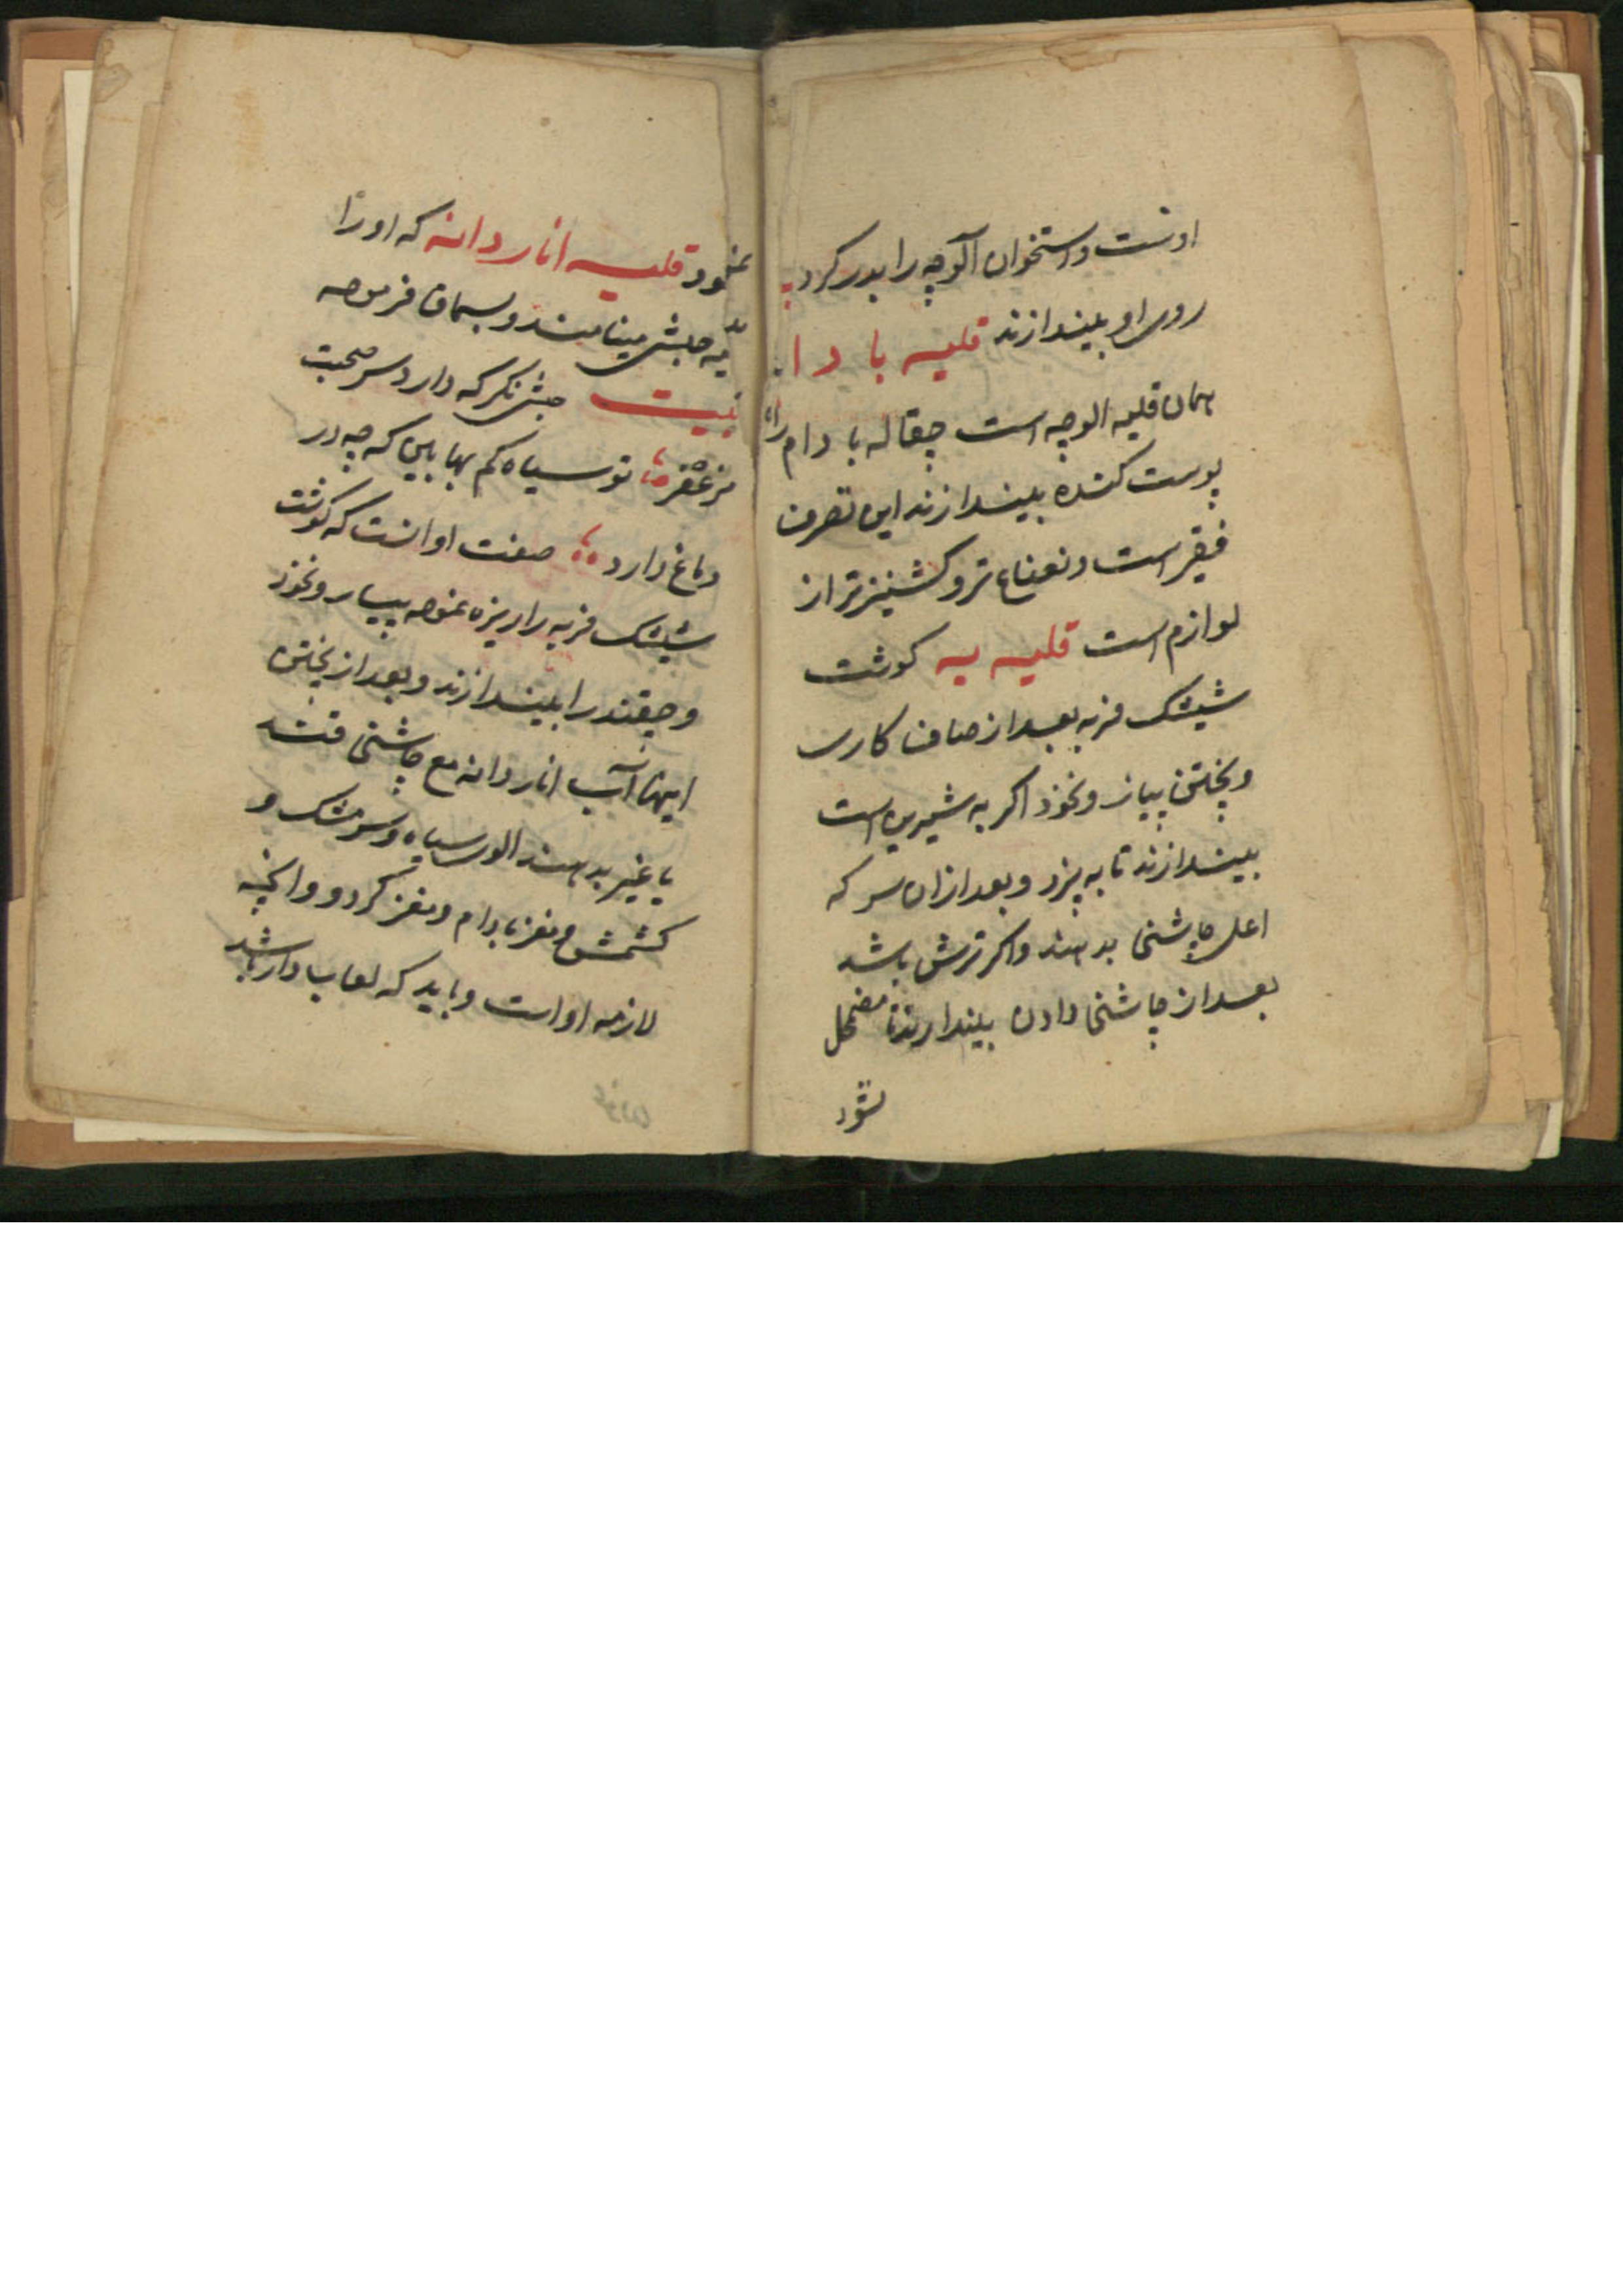 اوست و استخوان آلوچه را بدر کرد
روی او بیندازند قلیه با دا
همان قلیه الوچه است چقاله بادام را
پوست کنده بیندازند این تصرف
فقیر است و نعناع تر و کشنیز تر از
لوازم است قلیه به کوشت
شیشک فربه بعد از صاف کاری
و پختن پیاز و نخود اکر به شیرین است
بیندازند تا به پزد و بعد ازان سرکه
اعلی چاشنی بدهند و اکر ترش باشد
بعد از چاشنی دادن بیندازند تا مضمحل
نشود
قلیه انار دانه که اورا
حبشی مینامند و بسحاق فرموده
بیت حبشی نکر که دارد سر صحبت
مزعفر تو سیاه کم بها بین که چه در
دماغ دارد صفت او انست که کوشت
شیشک فربه را ریزه نموده پیاز و نخود
و چقندر را بیندازند و بعد از پختن
اینها آب انار دانه مع چاشنی قند
یا غیر بدهند الوی سیاه و سرمشک و
کشمش و مغز بادام و مغز کردو و
لازمه او است و باید که لعاب دار باشد